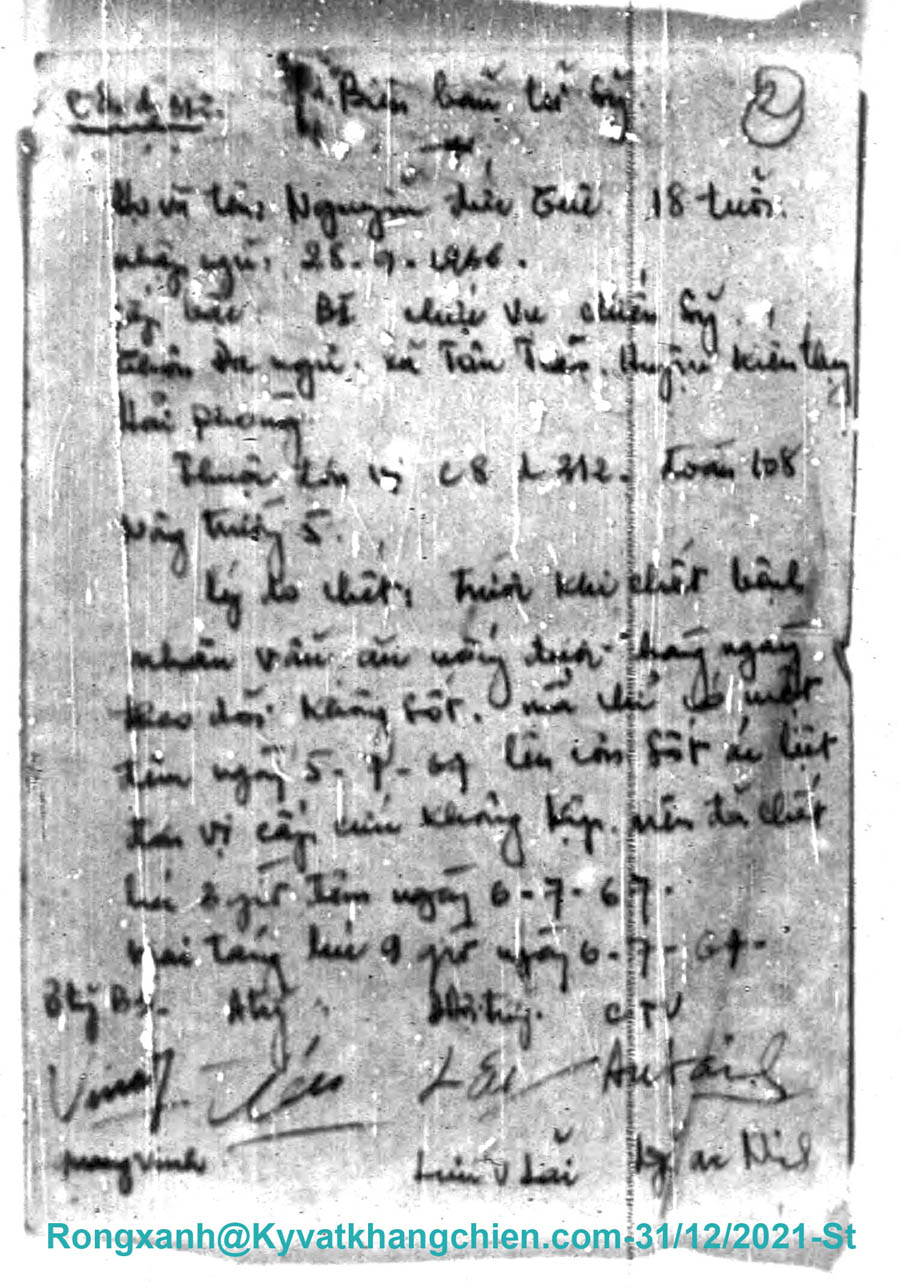 Biên bản tử sỹ
2
Họ và tên: Nguyễn Đức 18 tuổi.
nhập ngũ: 25-9-1966.
cấp bậc B1 chức vụ chiến sỹ.
thôn Đa ngư. xã Tân Huyện Kiến thụy
Hải phòng.
Thuộc đơn vị C8 312. Đoàn 108
Nông Trường 5.
Lý do chết: Trước khi chết bệnh
nhân vẫn ăn uống được hàng ngày
theo dõi không sốt. mà chỉ có một
đêm ngày 5-7-67 lên cơn sốt ác liệt
đơn vị cấp cứu không kịp. nên đã chết
lúc giờ đêm ngày 6-7-67.
mai táng lúc 9 giờ ngày 6-7-67-
CTV
Vinh
Rongxanh@Kyvatkhangchien.com-31/12/2021-St